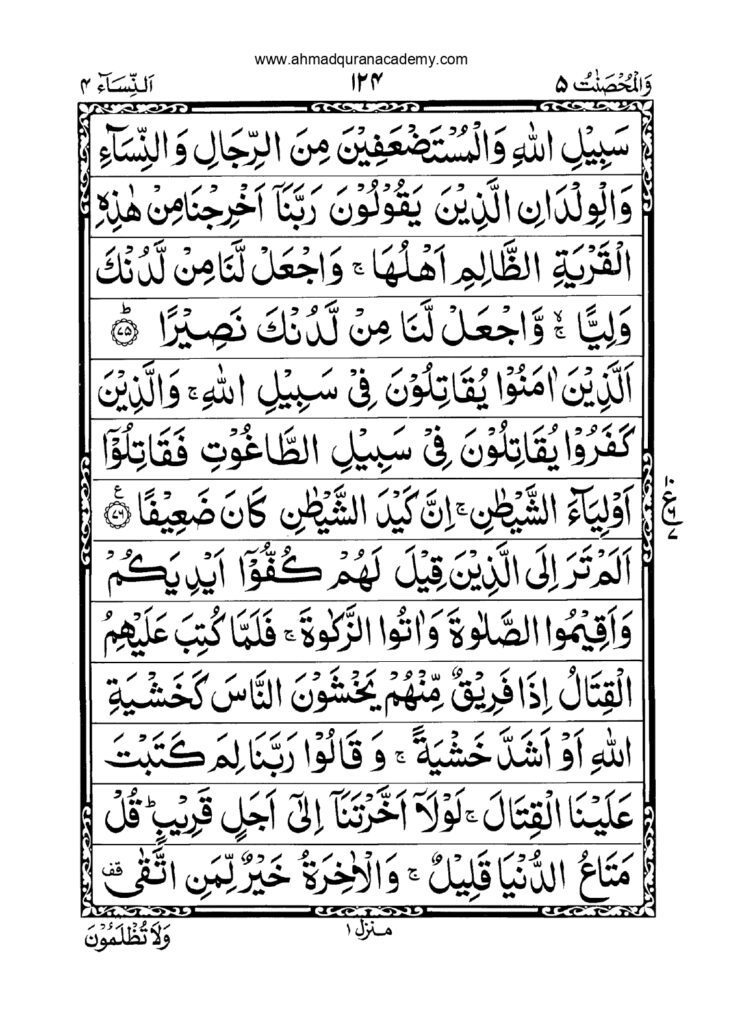 www.ahmadquranacademy.com
وَالْمُحْصَنٰتُ ۵ ۱۲۴ اَلنِّسَآء ۴
سَبِيْلِ اللّٰهِ وَالْمُسْتَضْعَفِيْنَ مِنَ الرِّجَالِ وَالنِّسَآءِ
وَالْوِلْدَانِ الَّذِيْنَ يَقُوْلُوْنَ رَبَّنَآ اَخْرِجْنَا مِنْ هٰذِهِ
الْقَرْيَةِ الظَّالِمِ اَهْلُهَا ۚ وَاجْعَلْ لَّنَا مِنْ لَّدُنْكَ
وَلِيًّا ۙۚ وَّاجْعَلْ لَّنَا مِنْ لَّدُنْكَ نَصِيْرًا ؕ۷۵
اَلَّذِيْنَ اٰمَنُوْا يُقَاتِلُوْنَ فِيْ سَبِيْلِ اللّٰهِ ۚ وَالَّذِيْنَ
كَفَرُوْا يُقَاتِلُوْنَ فِيْ سَبِيْلِ الطَّاغُوْتِ فَقَاتِلُوْٓا
اَوْلِيَآءَ الشَّيْطٰنِ ۚ اِنَّ كَيْدَ الشَّيْطٰنِ كَانَ ضَعِيْفًا ۷۶ ع
۱۰ ع ۶ ۷
اَلَمْ تَرَ اِلَى الَّذِيْنَ قِيْلَ لَهُمْ كُفُّوْٓا اَيْدِيَكُمْ
وَاَقِيْمُوا الصَّلٰوةَ وَاٰتُوا الزَّكٰوةَ ۚ فَلَمَّا كُتِبَ عَلَيْهِمُ
الْقِتَالُ اِذَا فَرِيْقٌ مِّنْهُمْ يَخْشَوْنَ النَّاسَ كَخَشْيَةِ
اللّٰهِ اَوْ اَشَدَّ خَشْيَةً ۚ وَقَالُوْا رَبَّنَا لِمَ كَتَبْتَ
عَلَيْنَا الْقِتَالَ ۚ لَوْلَآ اَخَّرْتَنَآ اِلٰٓى اَجَلٍ قَرِيْبٍ ؕ قُلْ
مَتَاعُ الدُّنْيَا قَلِيْلٌ ۚ وَالْاٰخِرَةُ خَيْرٌ لِّمَنِ اتَّقٰى قف
منزل ۱
وَلَا تُظْلَمُوْنَ